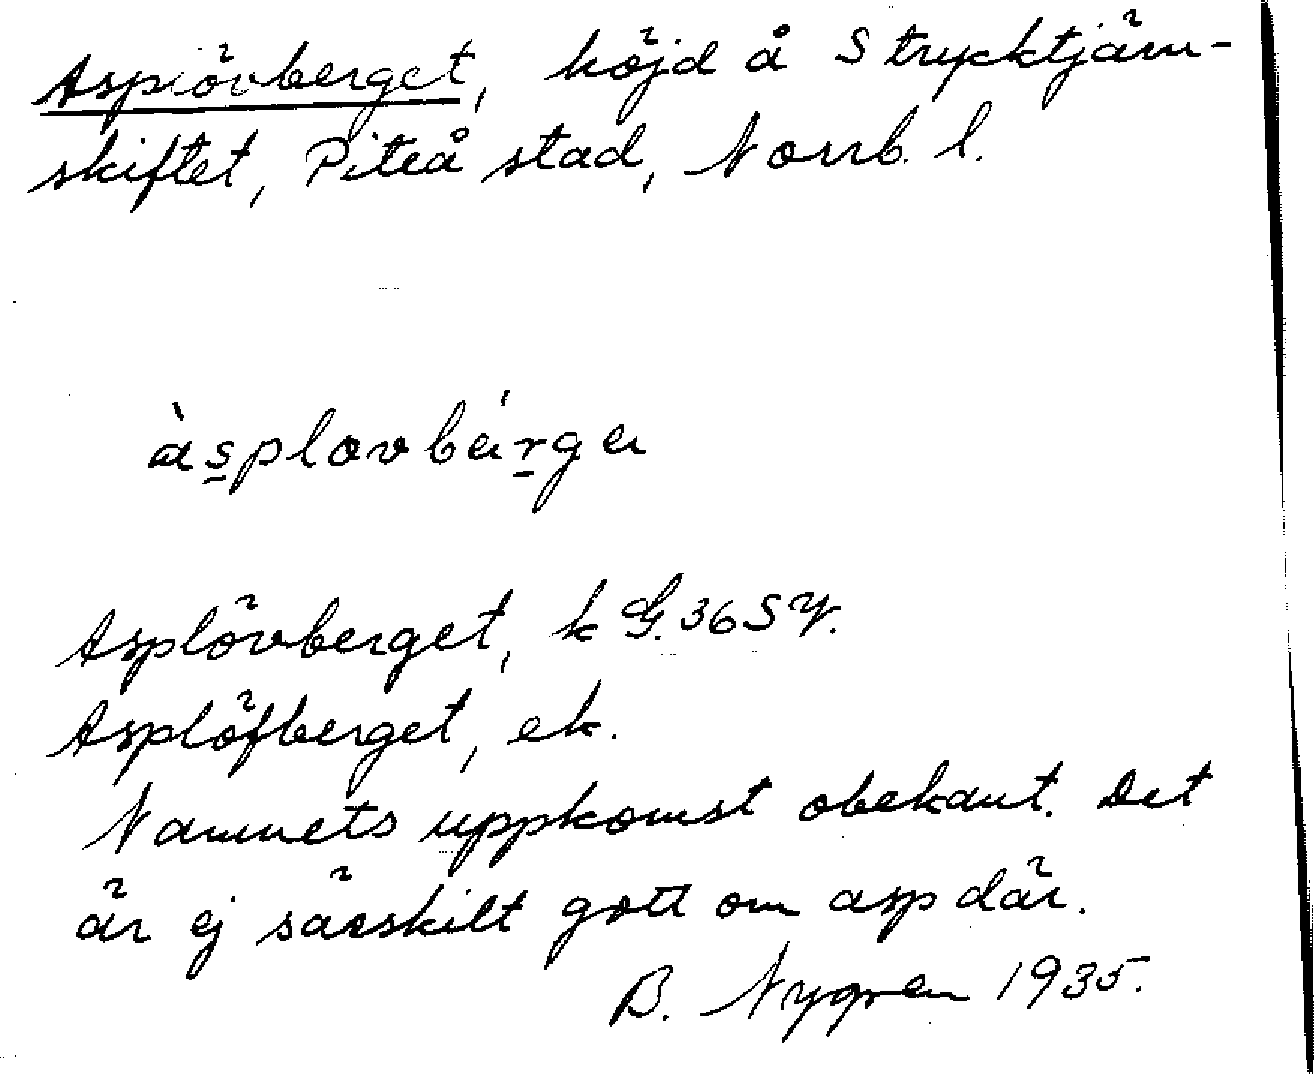 Asplövberget, höjd å Strycktjärn-
skiftet, Piteå stad, Norrb. l.
àsplovbárga
Asplövberget, k G. 36 SV.
Asplöfberget, ek.
Namnets uppkomst obekant. Det
är ej särskilt gott om asp där.
B. Nygren 1935.